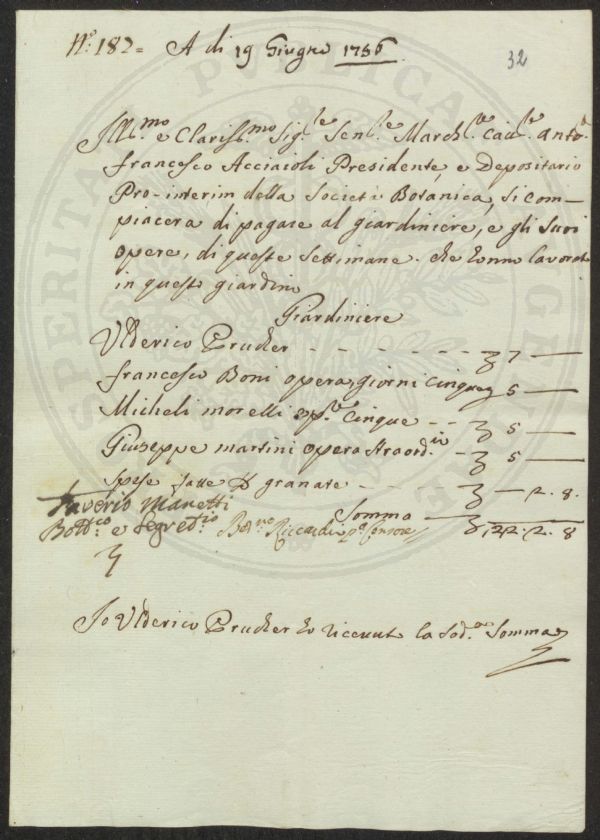 N.° 182 = A di 19 Giugno 1756
32
Ill.mo e Clariss.mo Sig.le Sen.le March.le Cau.le Anto.
Francesco Acciaioli Presidente, e Depositario
Pro-interim della Società Botanica, si com-
piacerà di pagare al giardiniere, e gli suoi
opere, di queste settimane che hanno lavorat
in questo giardino
Giardiniere
Ulderico Prucker - - - - - - - 7 —
Francesco Boni opera, giorni cinque 5 —
Micheli Morelli op.e cinque - - 5 —
Giuseppe Martini opera straord.ia - 5 —
spese fatte granate - - - - - — 2. 8.
Saverio Manetti
Bott.co e Segret.io Ber.no Riccardi p.o Censore
Somma — 22. 2. 8
Io Ulderico Prucker ho riceuut la sod.a Somma
PROSPERITATI PUBLICAE AUGENDAE